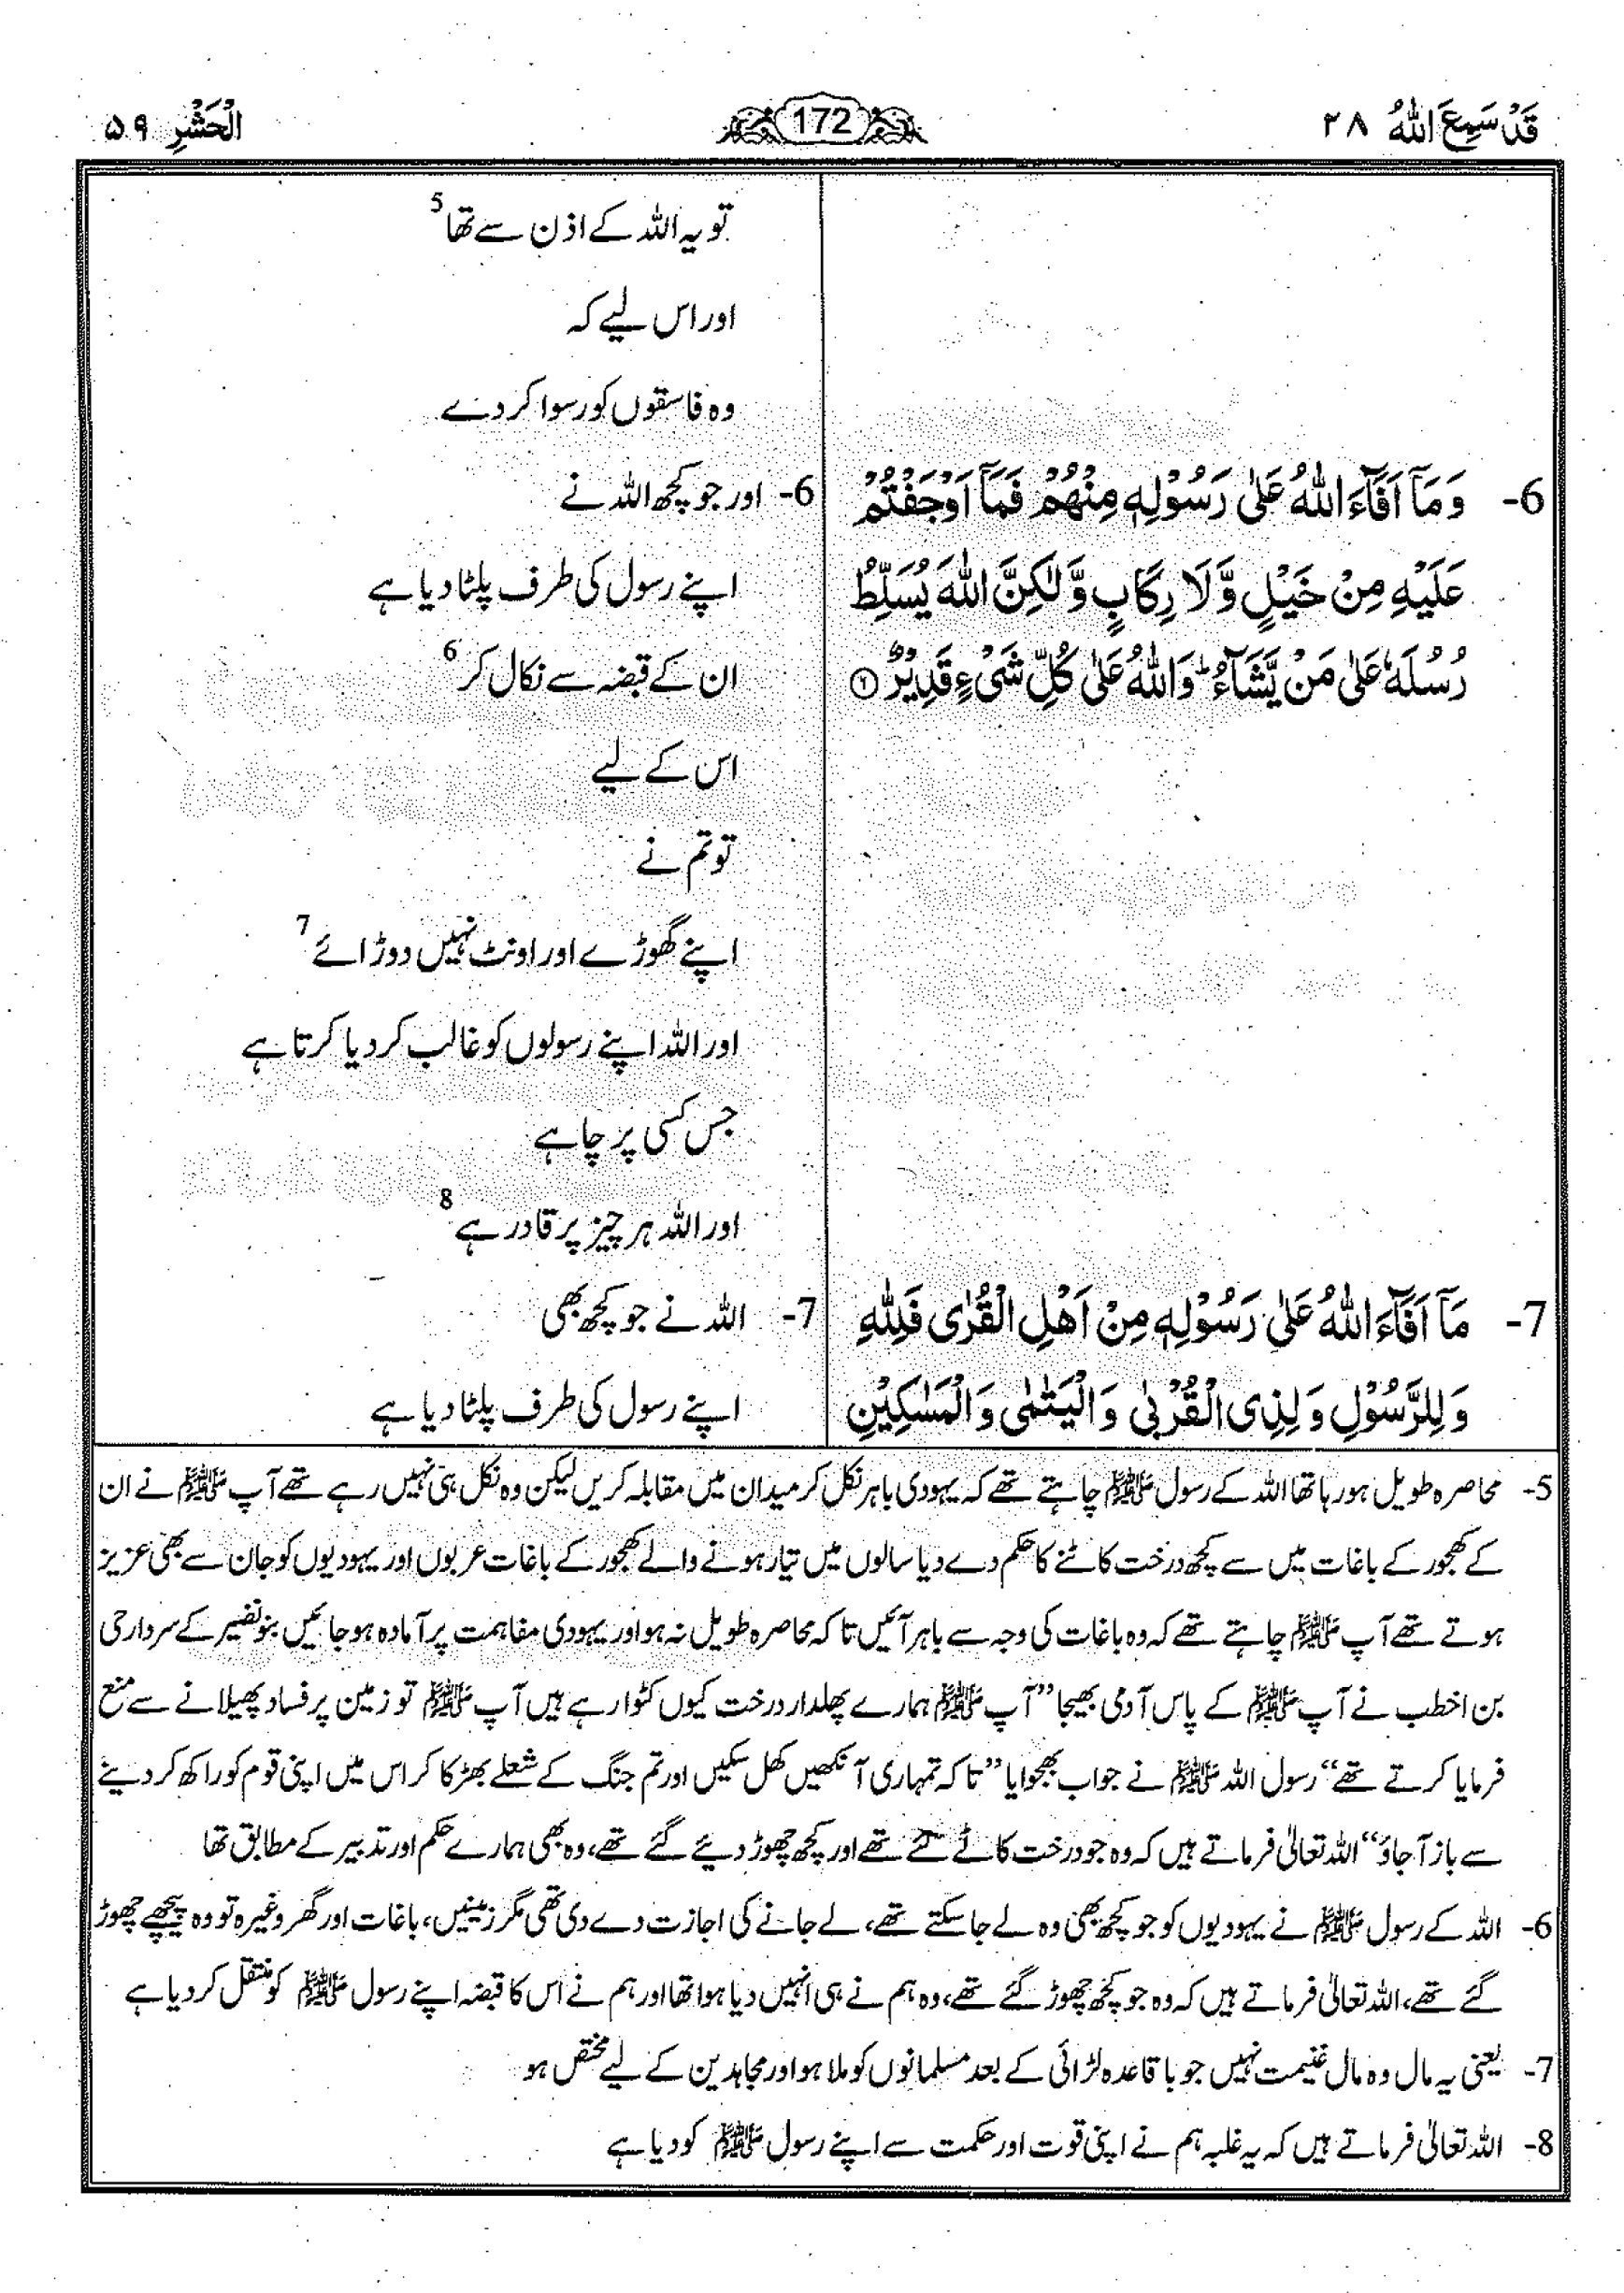 قَدْ سَمِعَ اللّٰهُ ۲۸
172
الْحَشْرِ ۵۹
تو یہ اللہ کے اذن سے تھا5
اور اس لیے کہ
وہ فاسقوں کو رسوا کر دے
6- وَ مَاۤ اَفَآءَ اللّٰهُ عَلٰى رَسُوْلِهٖ مِنْهُمْ فَمَاۤ اَوْجَفْتُمْ
عَلَیْهِ مِنْ خَیْلٍ وَّ لَا رِكَابٍ وَّ لٰكِنَّ اللّٰهَ یُسَلِّطُ
رُسُلَهٗ عَلٰى مَنْ یَّشَآءُ ؕ وَ اللّٰهُ عَلٰى كُلِّ شَیْءٍ قَدِیْرٌ ۶
6- اور جو کچھ اللہ نے
اپنے رسول کی طرف پلٹا دیا ہے
ان کے قبضہ سے نکال کر6
اس کے لیے
تو تم نے
اپنے گھوڑے اور اونٹ نہیں دوڑائے7
اور اللہ اپنے رسولوں کو غالب کر دیا کرتا ہے
جس کسی پر چاہے
اور اللہ ہر چیز پر قادر ہے8
7- مَاۤ اَفَآءَ اللّٰهُ عَلٰى رَسُوْلِهٖ مِنْ اَهْلِ الْقُرٰى فَلِلّٰهِ
وَ لِلرَّسُوْلِ وَ لِذِی الْقُرْبٰى وَ الْیَتٰمٰى وَ الْمَسٰكِیْنِ
7- اللہ نے جو کچھ بھی
اپنے رسول کی طرف پلٹا دیا ہے
5- محاصرہ طویل ہو رہا تھا اللہ کے رسول ﷺ چاہتے تھے کہ یہودی باہر نکل کر میدان میں مقابلہ کریں لیکن وہ نکل ہی نہیں رہے تھے آپ ﷺ نے ان
کے کھجور کے باغات میں سے کچھ درخت کاٹنے کا حکم دے دیا سالوں میں تیار ہونے والے کھجور کے باغات عربوں اور یہودیوں کو جان سے بھی عزیز
ہوتے تھے آپ ﷺ چاہتے تھے کہ وہ باغات کی وجہ سے باہر آئیں تاکہ محاصرہ طویل نہ ہو اور یہودی مفاہمت پر آمادہ ہو جائیں بنو نضیر کے سردار حی
بن اخطب نے آپ ﷺ کے پاس آدمی بھیجا ”آپ ﷺ ہمارے پھلدار درخت کیوں کٹوا رہے ہیں آپ ﷺ تو زمین پر فساد پھیلانے سے منع
فرمایا کرتے تھے“ رسول اللہ ﷺ نے جواب بھجوایا ”تاکہ تمہاری آنکھیں کھل سکیں اور تم جنگ کے شعلے بھڑکا کر اس میں اپنی قوم کو راکھ کر دینے
سے باز آ جاؤ“ اللہ تعالیٰ فرماتے ہیں کہ وہ جو درخت کاٹے گئے تھے اور کچھ چھوڑ دیئے گئے تھے، وہ بھی ہمارے حکم اور تدبیر کے مطابق تھا
6- اللہ کے رسول ﷺ نے یہودیوں کو جو کچھ بھی وہ لے جا سکتے تھے، لے جانے کی اجازت دے دی تھی مگر زمینیں، باغات اور گھر وغیرہ تو وہ پیچھے چھوڑ
گئے تھے، اللہ تعالیٰ فرماتے ہیں کہ وہ جو کچھ چھوڑ گئے تھے، وہ ہم نے ہی انہیں دیا ہوا تھا اور ہم نے اس کا قبضہ اپنے رسول ﷺ کو منتقل کر دیا ہے
7- یعنی یہ مال وہ مال غنیمت نہیں جو باقاعدہ لڑائی کے بعد مسلمانوں کو ملا ہو اور مجاہدین کے لیے مختص ہو
8- اللہ تعالیٰ فرماتے ہیں کہ یہ غلبہ ہم نے اپنی قوت اور حکمت سے اپنے رسول ﷺ کو دیا ہے